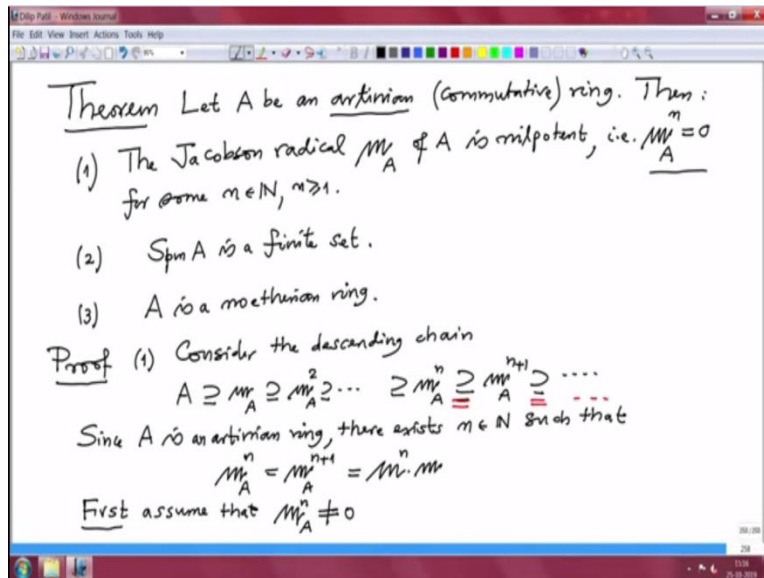 Dilip Patil - Windows Journal
File Edit View Insert Actions Tools Help
Theorem Let A be an artinian (commutative) ring. Then:
(1) The Jacobson radical 𝔪_A of A is nilpotent, i.e. 𝔪_A^n = 0
for some n ∈ ℕ, n ≥ 1.
(2) Spm A is a finite set.
(3) A is a noetherian ring.
Proof (1) Consider the descending chain
A ⊇ 𝔪_A ⊇ 𝔪_A^2 ⊇ ··· ⊇ 𝔪_A^n ⊇ 𝔪_A^{n+1} ⊇ ····
Since A is an artinian ring, there exists n ∈ ℕ such that
𝔪_A^n = 𝔪_A^{n+1} = 𝔪^n · 𝔪
First assume that 𝔪_A^n ≠ 0
258
25-10-2019